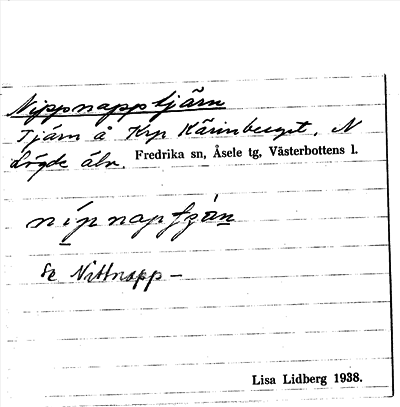 Nippnapptjärn
Tjärn å Krp Kärinberget, N
Lögde älv. Fredrika sn, Åsele tg, Västerbottens l.
nipnap
Se Nittnapp –
Lisa Lidberg 1938.